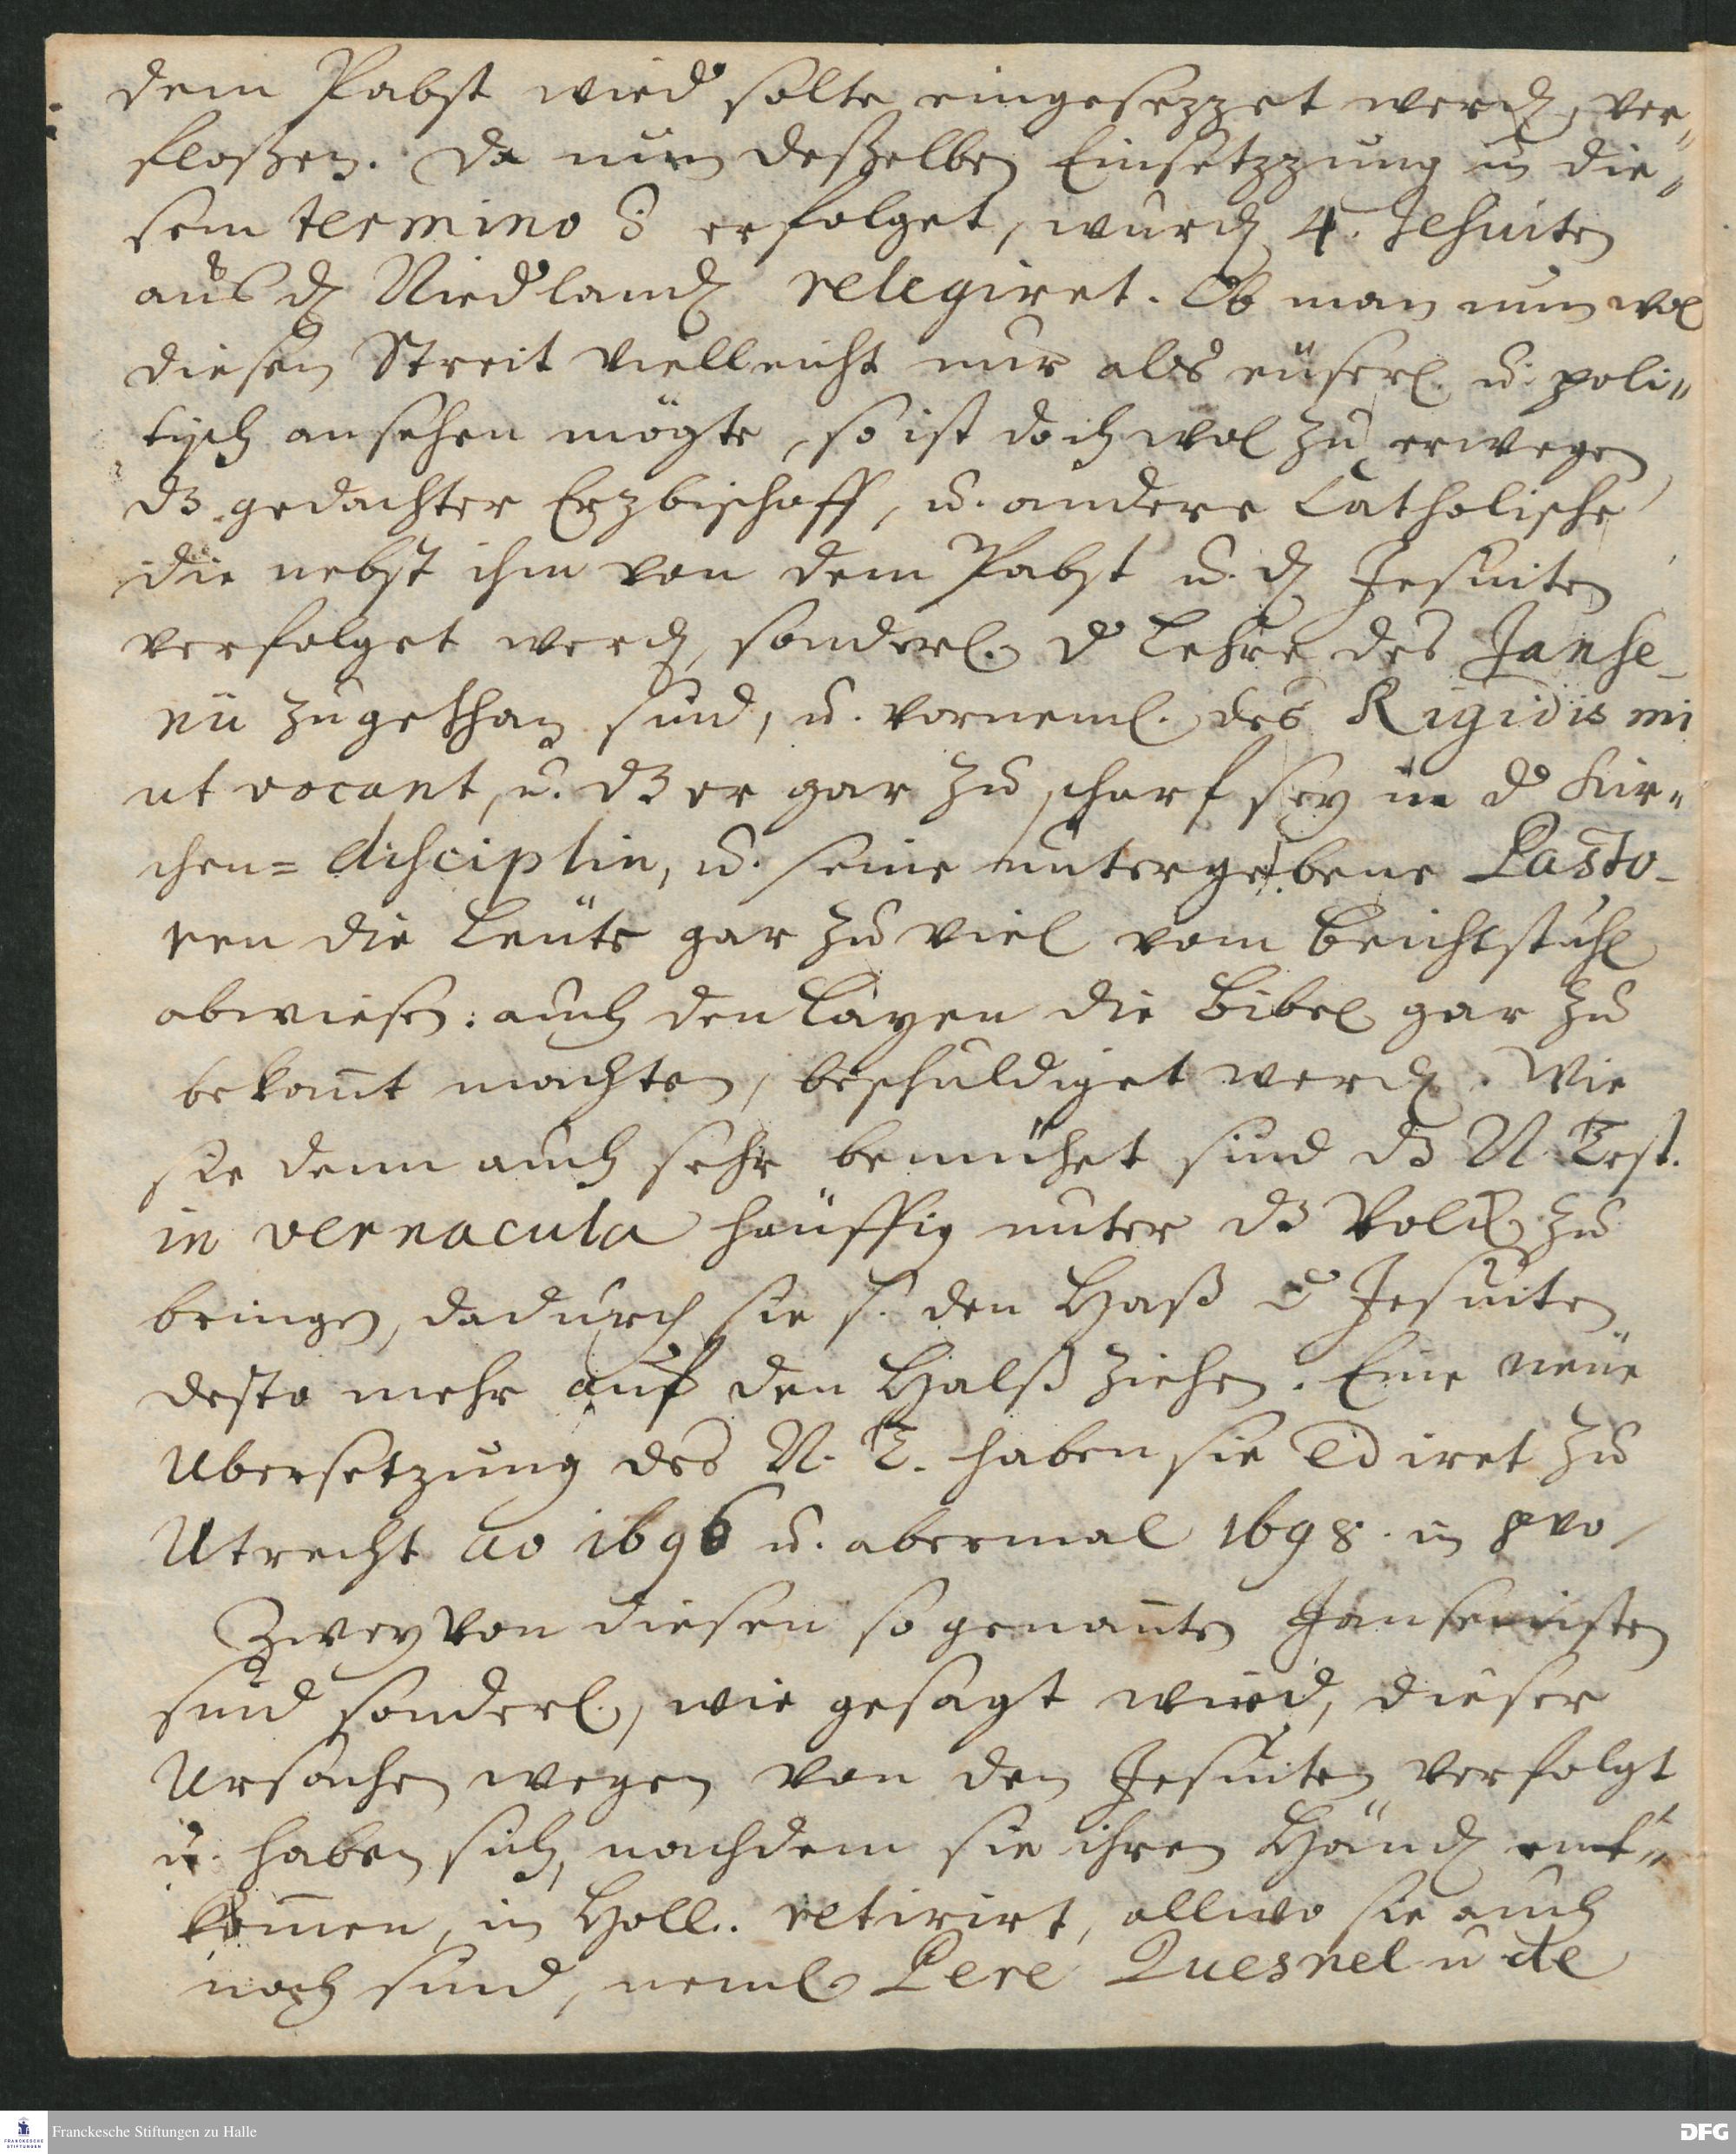 dem Pabst wied̉ solte eingesezzet werd, ver„
floßen. Da nun deßelben Einsetzzung in die„
sem termino 8 erfolget, wurd 4. Jesuiten
aus d Niedland relegiret. Ob man nun wol
diesen Streit vielleicht nur als eüserl. u. poli„
tisch ansehen mögte, so ist doch wol zu erwegen
dz gedachter Erzbischoff, u. andere Catholische
die nebst ihm von dem Pabst u. d Jesuiten
verfolget werd, sonderl. d Lehre des Janse-
nii zugethan sind, u. vorneml. des Rigidismi
ut vocant, u. dz er gar zu scharf sey in d Kir„
chen= disciplin, u. seine untergebene Pasto-
ren die Leüte gar zu viel vom Beichtstuhl
abwiesen: auch den Layen die Bibel gar zu
bekan̄t machten, beschuldiget werd. Wie
sie denn auch sehr bemühet sind dz N. Test.
in vernacula häuffig unter dz Volck zu
bringen, dadurch sie s. den Haß d Jesuiten
desto mehr auf den Halß ziehen. Eine neüe
Ubersetzung des N. T. haben sie ediret zu
Utrecht ao 1696 u. abermal 1698. in 8vo
Zwey von diesen so genan̄ten Jansenisten
sind sonderl., wie gesagt wird, dieser
Ursachen wegen von den Jesuiten verfolgt
u. haben sich, nachdem sie ihren Händ ent„
kom̄en, in Holl. retirirt, allwo sie auch
noch sind, neml. Pere Quesnel u de
Franckesche Stiftungen zu Halle
FRANCKESCHE STIFTUNGEN
DFG